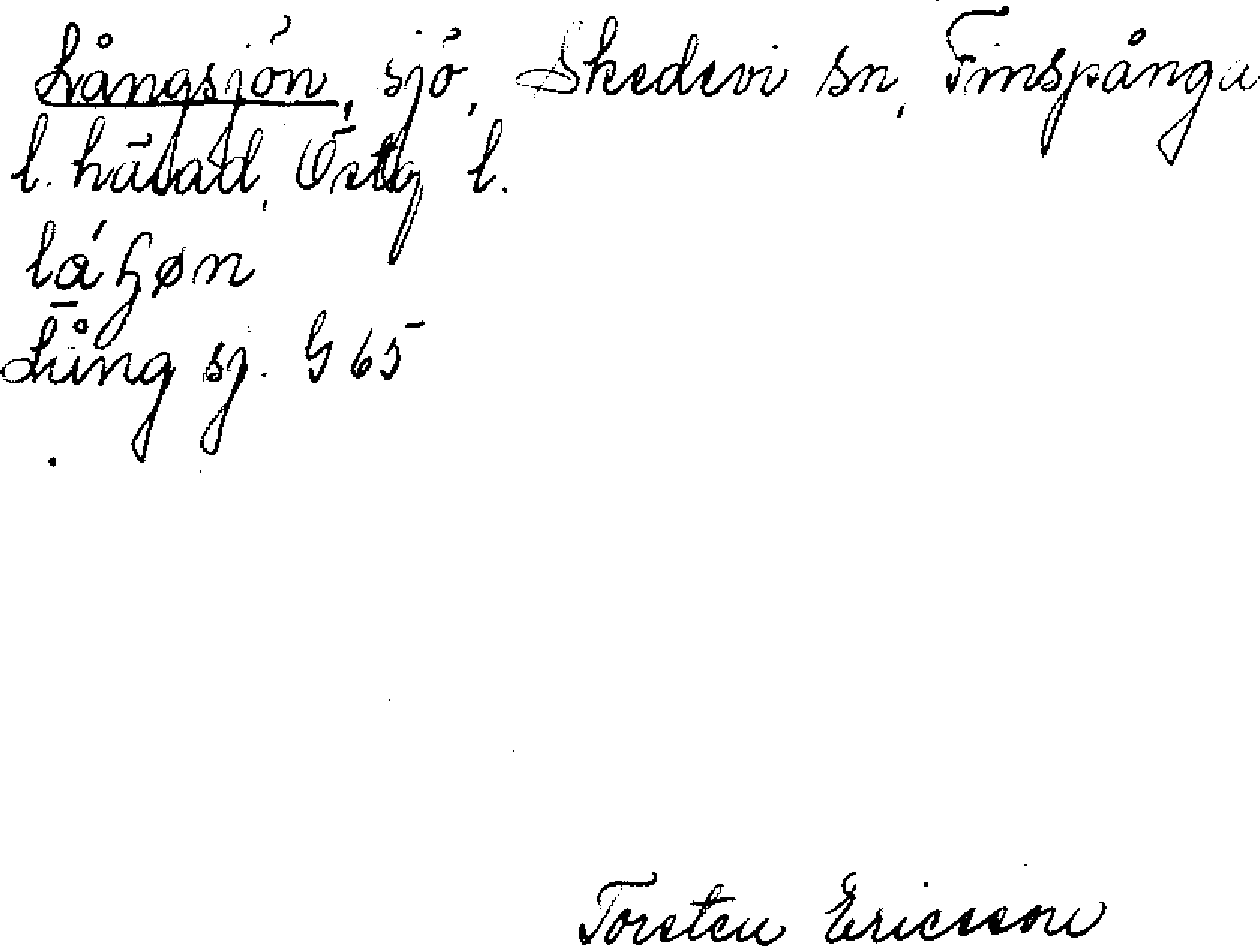 Långsjön, sjö, Skedevi sn, Finspånga
l. härad, Östg l.
Lång sj. G 65
Torsten Ericsson